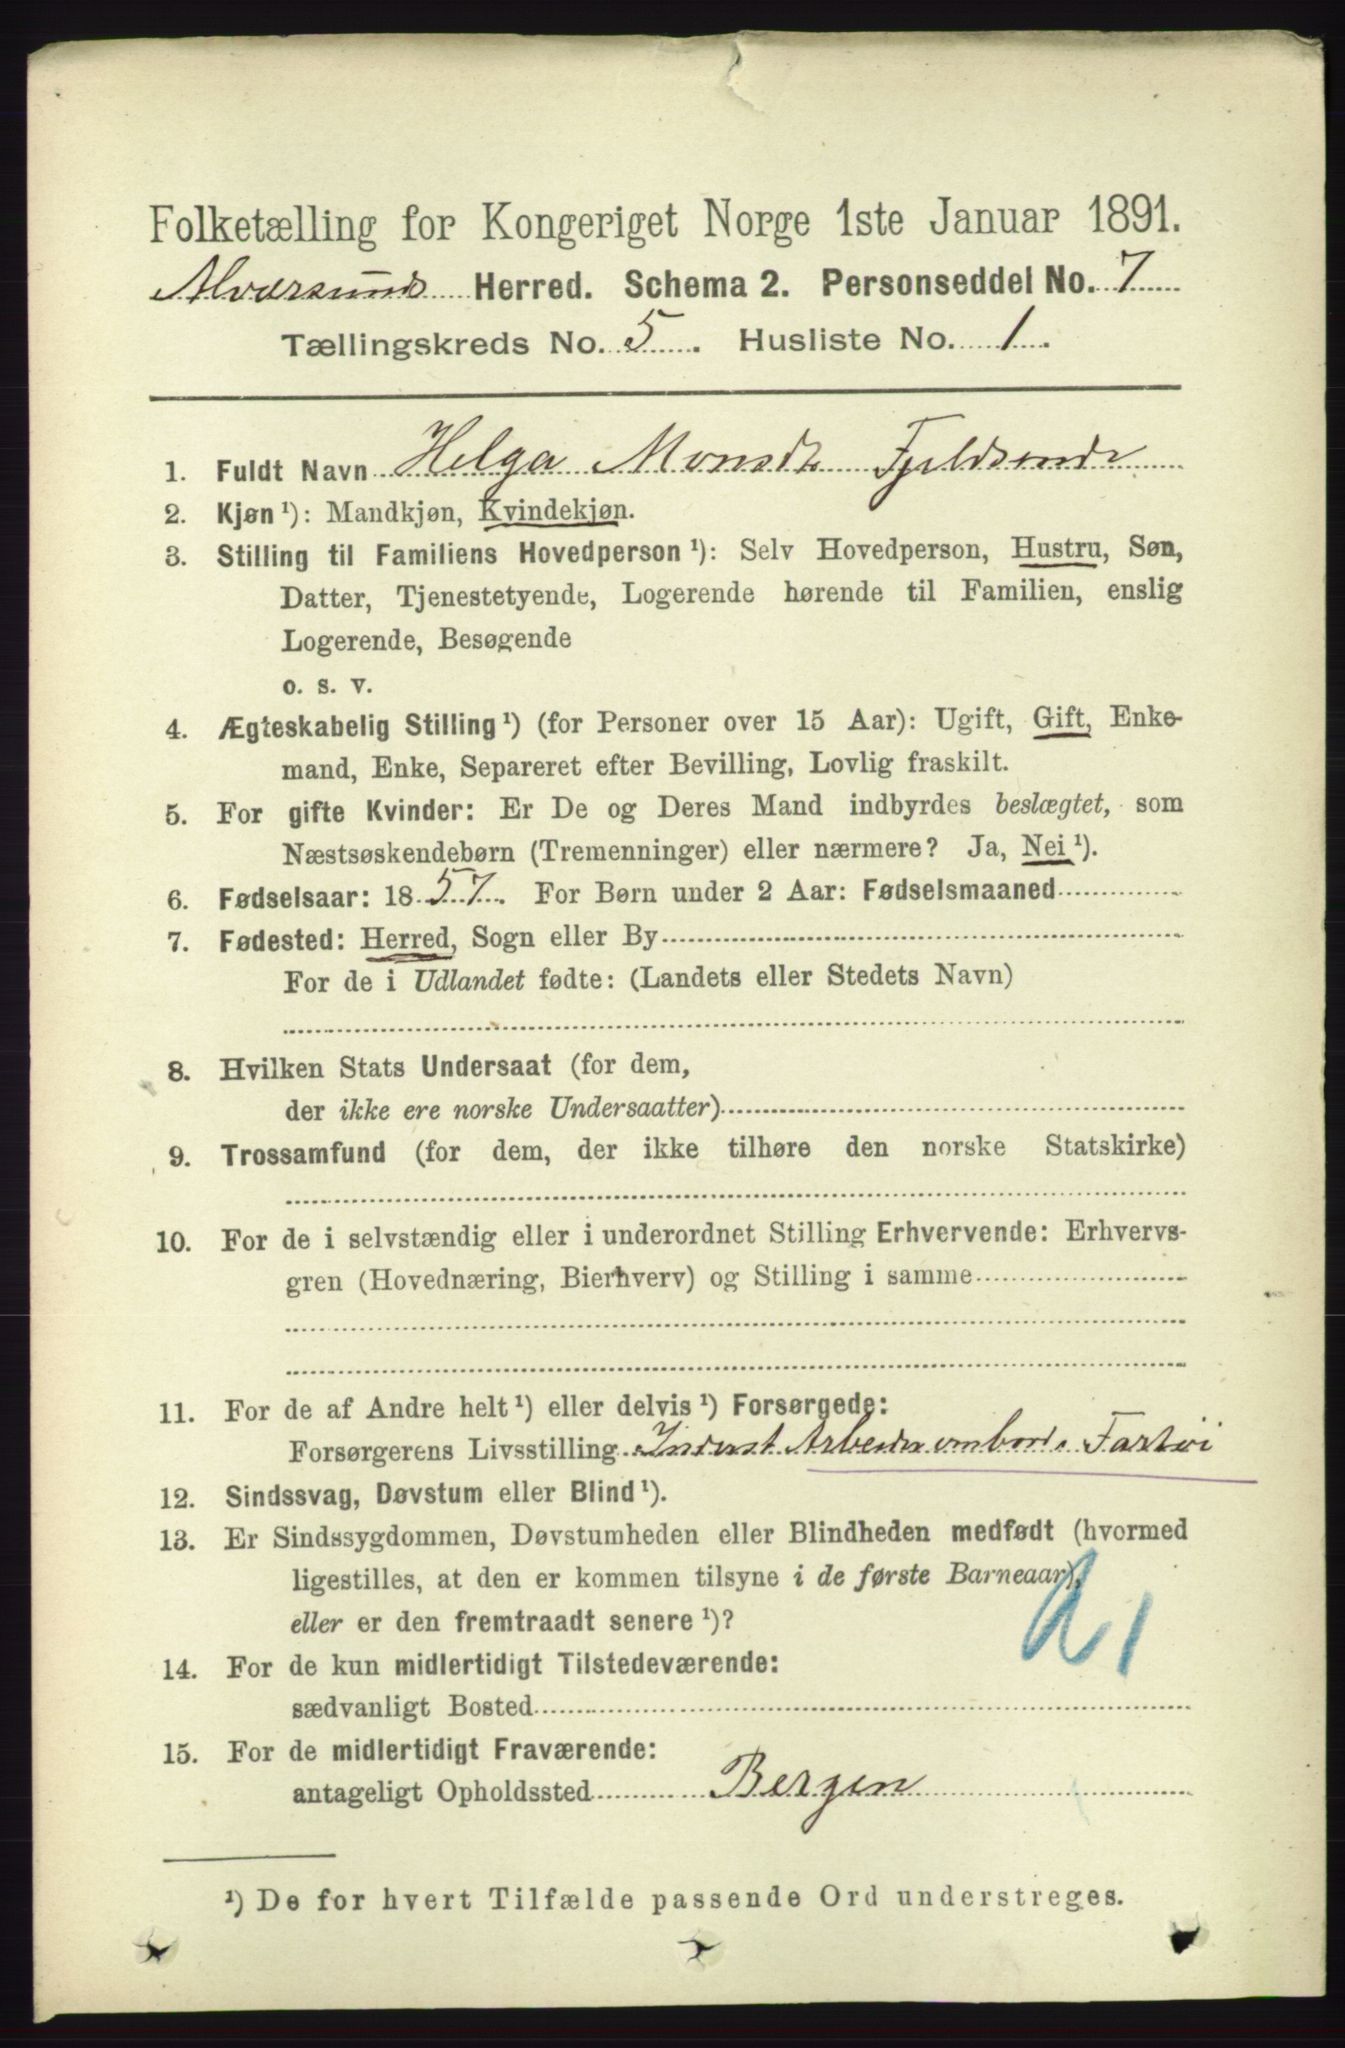 Folketælling for Kongeriget Norge 1ste Januar 1891.
Alversunds Herred. Schema 2. Personseddel No. 7
Tællingskreds No. 5. Husliste No. 1.
1. Fuldt Navn Helga Monsdtr Fjeldsende
2. Kjøn ¹): Mandkjøn, Kvindekjøn.
3. Stilling til Familiens Hovedperson ¹): Selv Hovedperson, Hustru, Søn,
Datter, Tjenestetyende, Logerende hørende til Familien, enslig
Logerende, Besøgende
o. s. v.
4. Ægteskabelig Stilling ¹) (for Personer over 15 Aar): Ugift, Gift, Enke-
mand, Enke, Separeret efter Bevilling, Lovlig fraskilt.
5. For gifte Kvinder: Er De og Deres Mand indbyrdes beslægtet, som
Næstsøskendebørn (Tremenninger) eller nærmere? Ja, Nei ¹).
6. Fødselsaar: 1857. For Børn under 2 Aar: Fødselsmaaned
7. Fødested: Herred, Sogn eller By
For de i Udlandet fødte: (Landets eller Stedets Navn)
8. Hvilken Stats Undersaat (for dem,
der ikke ere norske Undersaatter)
9. Trossamfund (for dem, der ikke tilhøre den norske Statskirke)
10. For de i selvstændig eller i underordnet Stilling Erhvervende: Erhvervs-
gren (Hovednæring, Bierhverv) og Stilling i samme
11. For de af Andre helt ¹) eller delvis ¹) Forsørgede:
Forsørgerens Livsstilling Inderst Arbeider ombord i Fartøi
12. Sindssvag, Døvstum eller Blind ¹).
13. Er Sindssygdommen, Døvstumheden eller Blindheden medfødt (hvormed
ligestilles, at den er kommen tilsyne i de første Barneaar),
eller er den fremtraadt senere ¹)?
14. For de kun midlertidigt Tilstedeværende:
sædvanligt Bosted
15. For de midlertidigt Fraværende:
antageligt Opholdssted Bergen
¹) De for hvert Tilfælde passende Ord understreges.